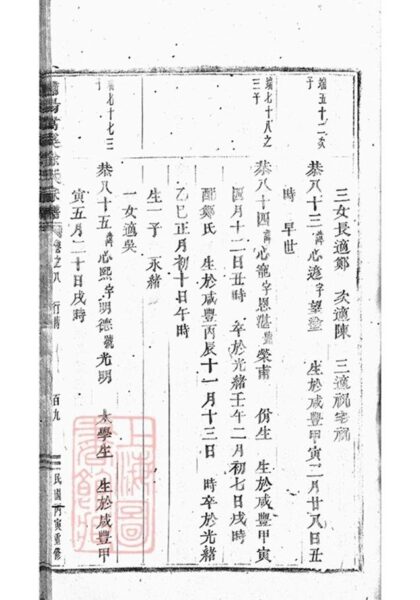 三女長適鄭 次適陳 三適祝宅祝
端五十二次子
恭八十三諱心適字望 生於咸豐甲寅二月廿八日丑
時 早世
端七十八之三子
恭八十四諱心寵字恩湛號榮甫 佾生 生於咸豐甲寅
四月十二日丑時 卒於光緒壬午二月初七日戌時
配鄭氏 生於咸豐丙辰十一月十三日 時卒於光緒
乙巳正月初十日午時
生一子 永緒
一女適吳
端七十七三子
恭八十五諱心熙字明德號光明 太學生 生於咸豐甲
寅五月二十日戌時
卷之八 行 百九 民國丙寅重修
上海圖書館藏